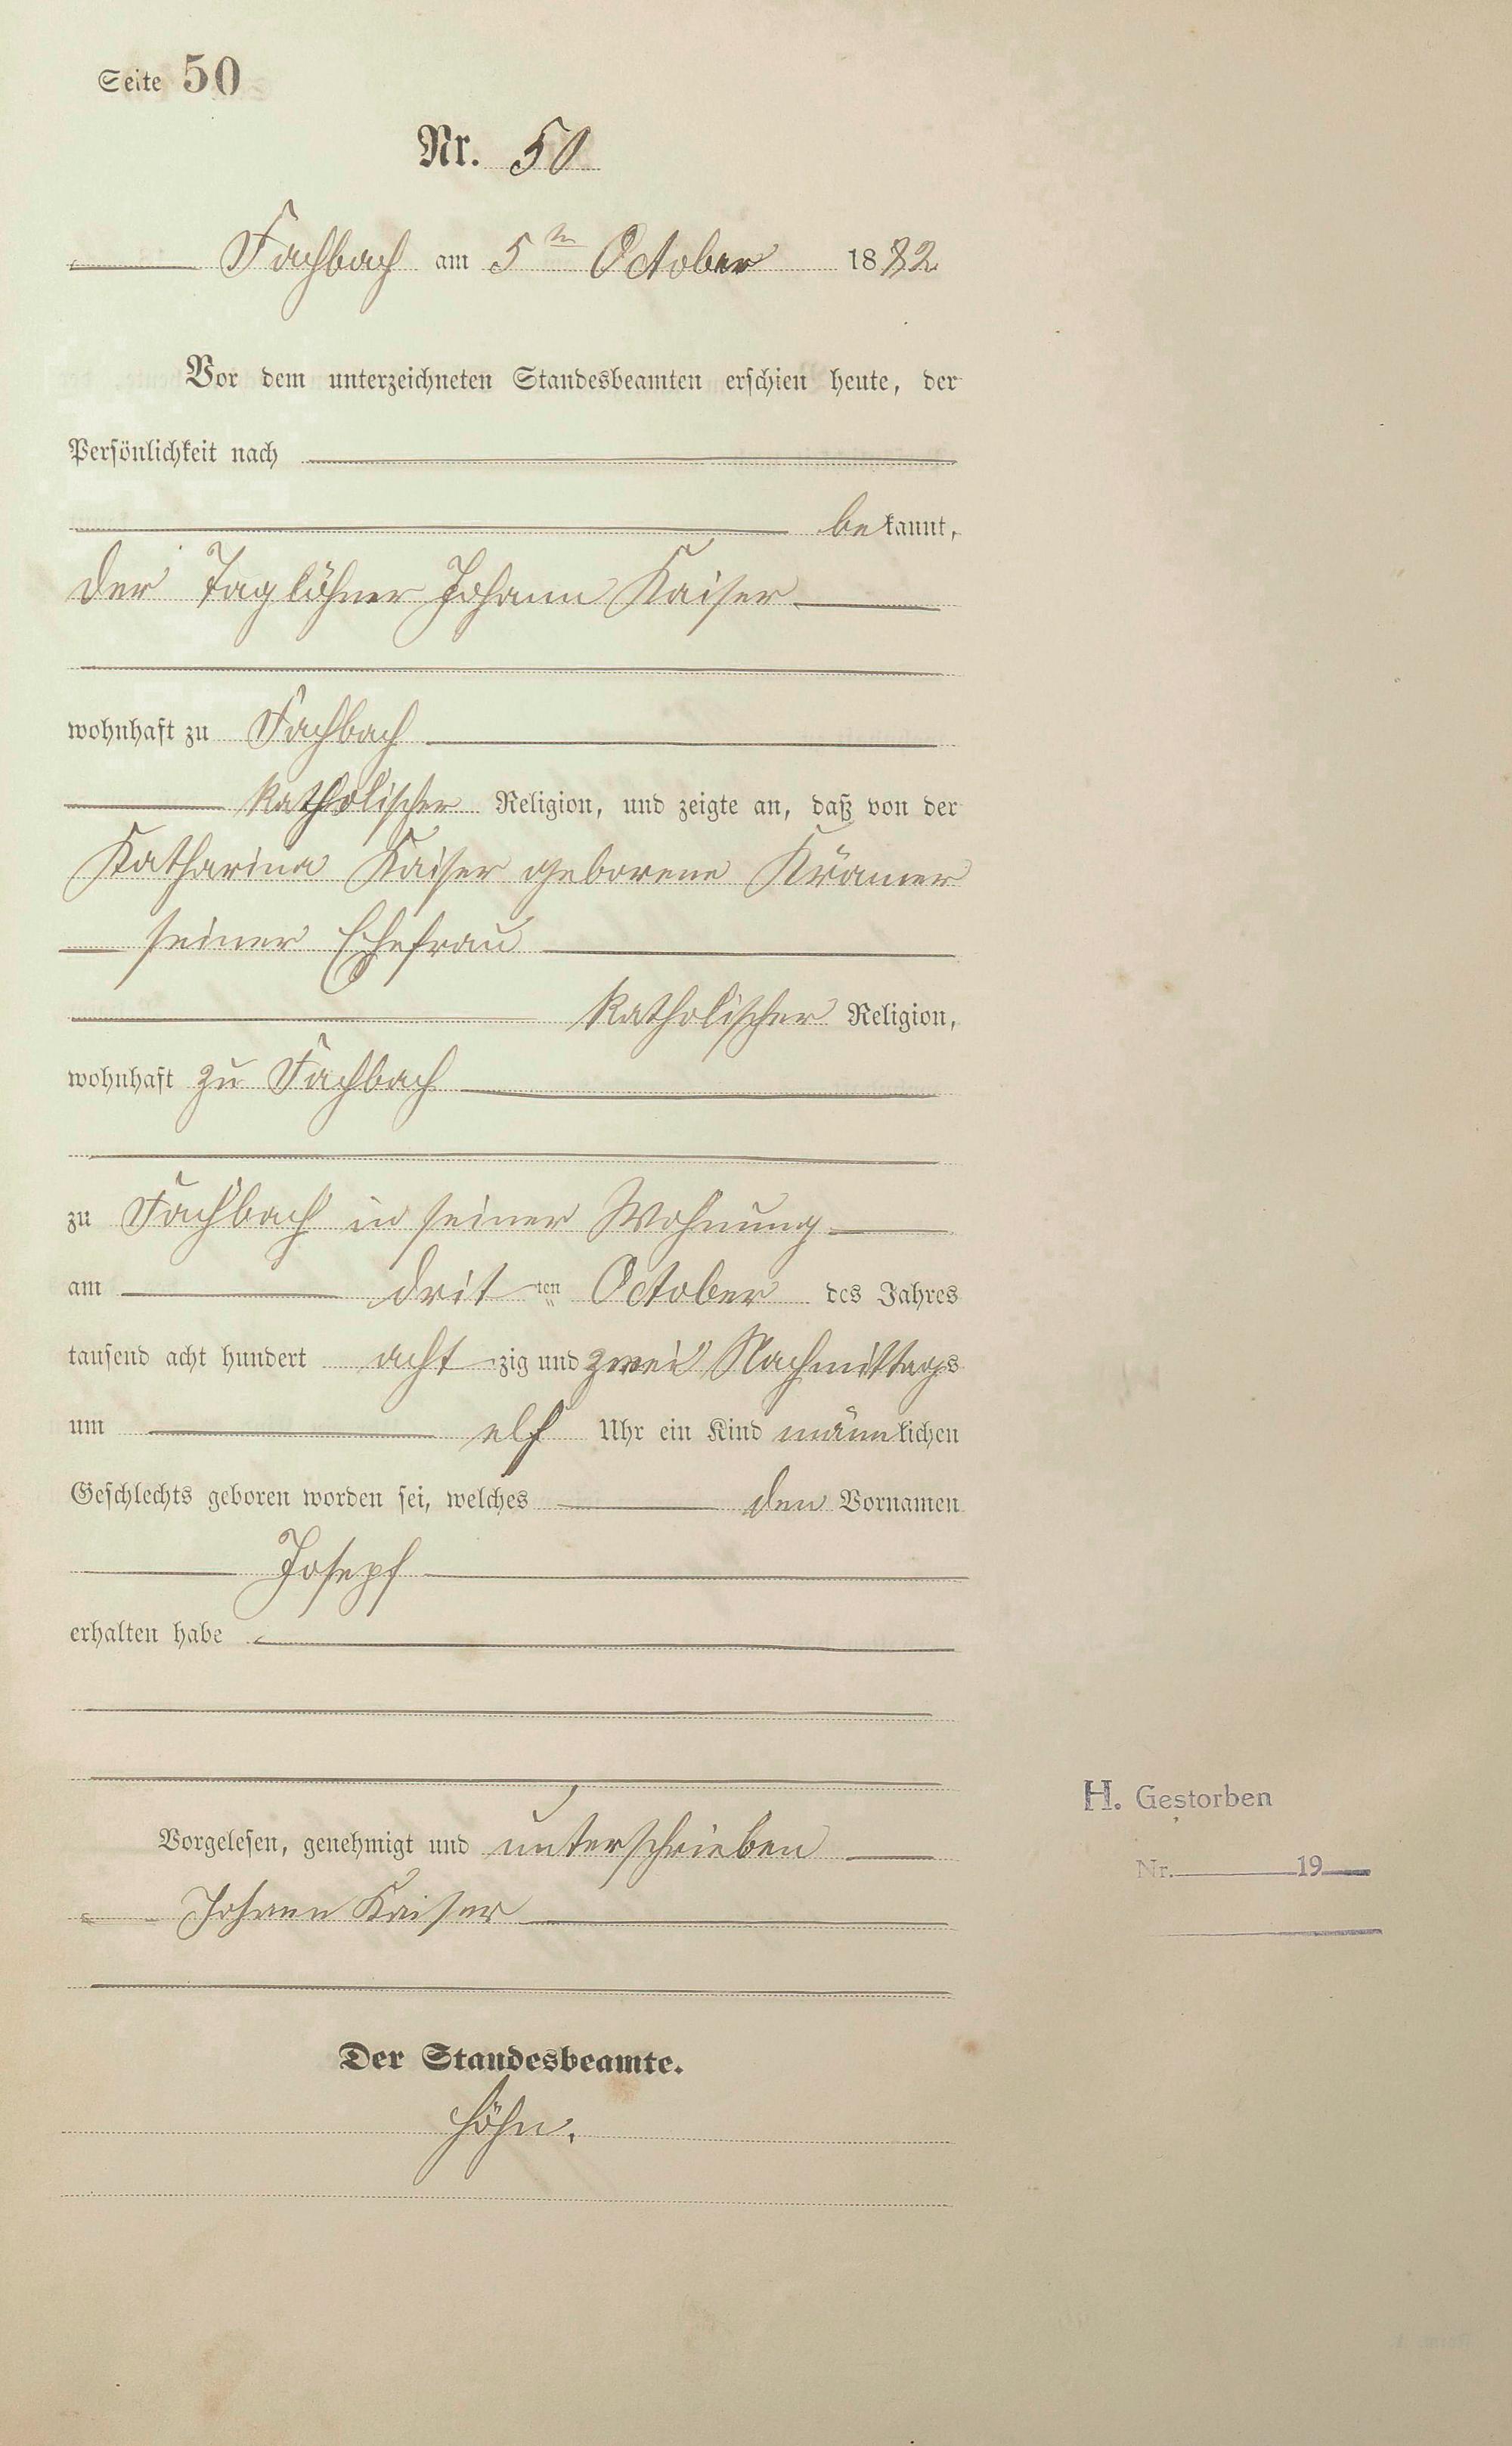 Seite 50
Nr. 50
Fachbach am 5ten October 1882
Vor dem unterzeichneten Standesbeamten erschien heute, der
Persönlichkeit nach
bekannt,
der Taglöhner Johann Kaiser
wohnhaft zu Fachbach
katholischer Religion, und zeigte an, daß von der
Katharina Kaiser geborene Krämer
seiner Ehefrau
katholischer Religion,
wohnhaft zu Fachbach
zu Fachbach in seiner Wohnung
am dritten October des Jahres
tausend acht hundert achtzig und zwei Nachmittags
um elf Uhr ein Kind männlichen
Geschlechts geboren worden sei, welches den Vornamen
Joseph
erhalten habe
H. Gestorben
Vorgelesen, genehmigt und unterschrieben
Nr. 19
Johann Kaiser
Der Standesbeamte.
Höhn.